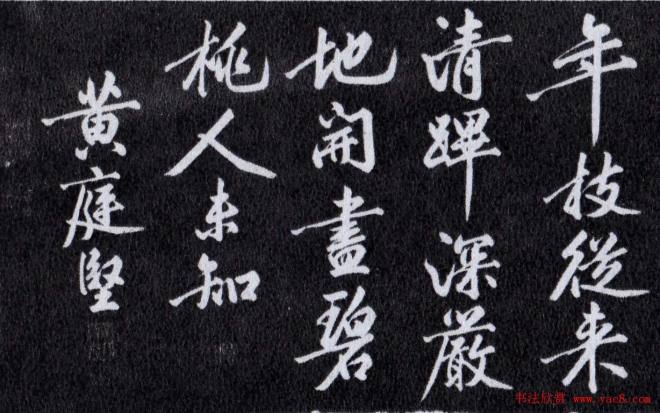 年技從来
清蹕深嚴
地開盡碧
桃人未知
黄庭堅
书法欣赏 www.yac8.com